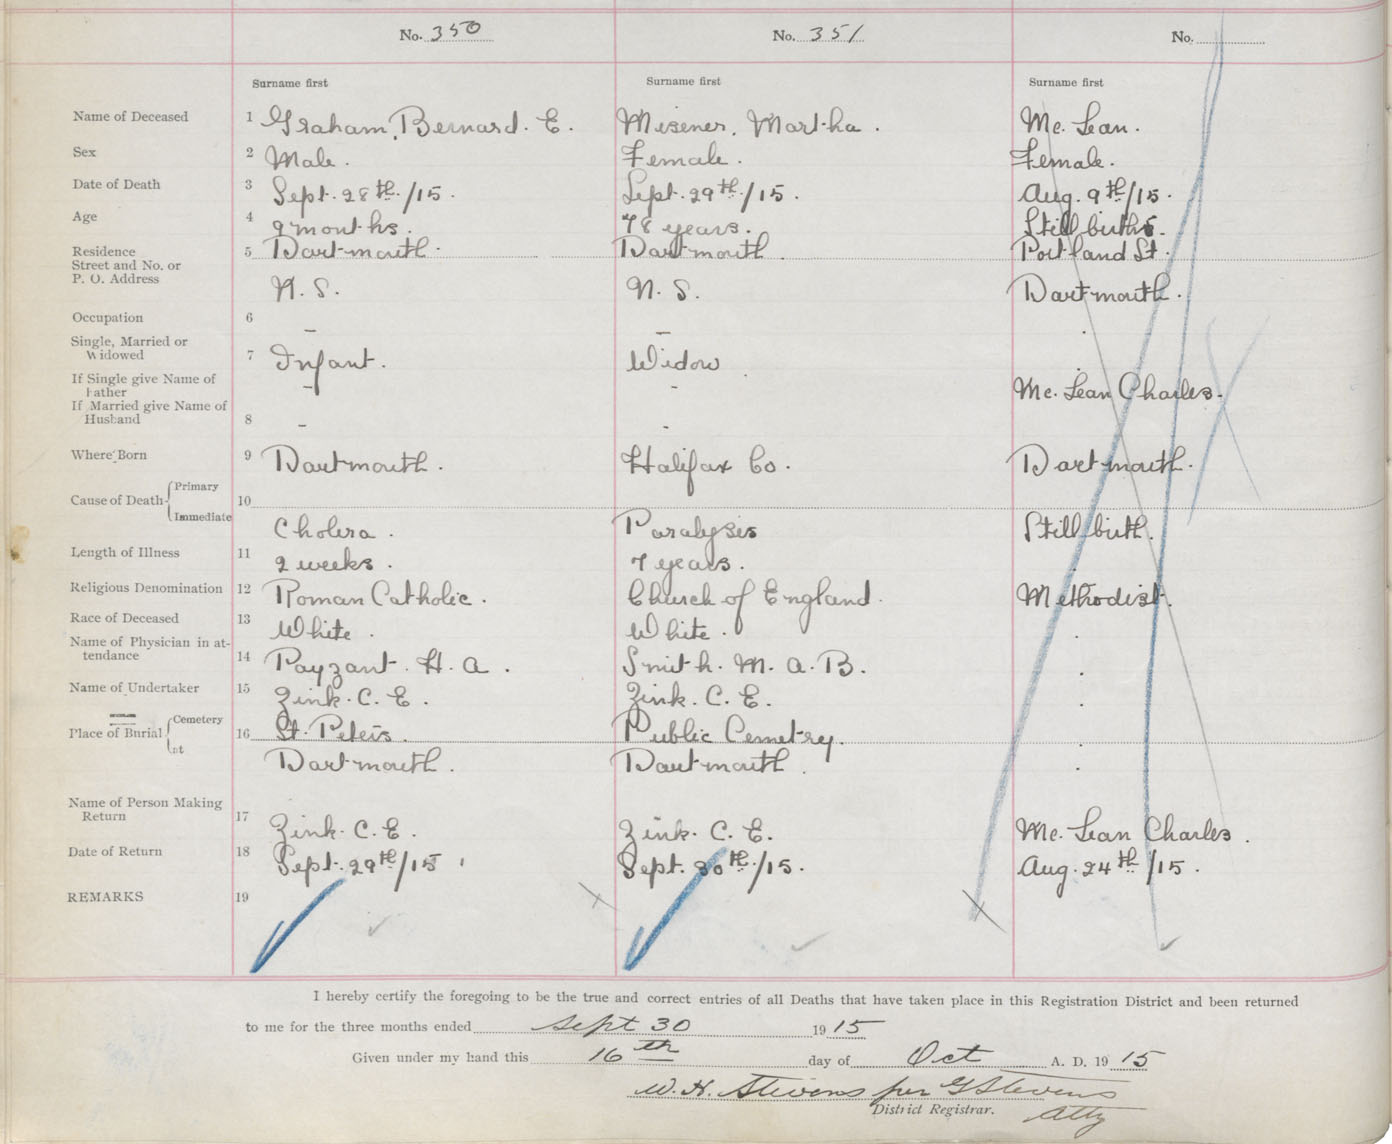 No. 350 No. 351 No.
Surname first Surname first Surname first
Name of Deceased 1 Graham, Bernard. E. Misener, Martha. Mc. Lean.
Sex 2 Male. Female. Female.
Date of Death 3 Sept. 28th/15. Sept. 29th/15. Aug. 9th/15.
Age 4 9 months. 78 years. Still birth.
Residence 5 Dartmouth. Dartmouth. Portland St.
Street and No. or
P. O. Address N. S. N. S. Dartmouth.
Occupation 6 – –
Single, Married or
Widowed 7 Infant. Widow.
If Single give Name of
Father – - Mc. Lean Charles.
If Married give Name of
Husband 8 – -
Where Born 9 Dartmouth. Halifax Co. Dartmouth.
Cause of Death { Primary 10
Immediate Cholera. Paralysis Still birth.
Length of Illness 11 2 weeks. 7 years.
Religious Denomination 12 Roman Catholic. Church of England. Methodist.
Race of Deceased 13 White. White.
Name of Physician in at-
tendance 14 Payzant. H. A. Smith. M. A. B.
Name of Undertaker 15 Zink. C. E. Zink. C. E.
Place of Burial { Cemetery 16 St. Peters. Public Cemetry.
at Dartmouth. Dartmouth.
Name of Person Making
Return 17 Zink. C. E. Zink. C. E. Mc. Lean Charles.
Date of Return 18 Sept. 29th/15 Sept. 30th/15. Aug. 24th/15.
REMARKS 19
I hereby certify the foregoing to be the true and correct entries of all Deaths that have taken place in this Registration District and been returned
to me for the three months ended Sept 30 1915
Given under my hand this 16th day of Oct A. D. 1915
W. H. Stevens per G Stevens
District Registrar. Atty